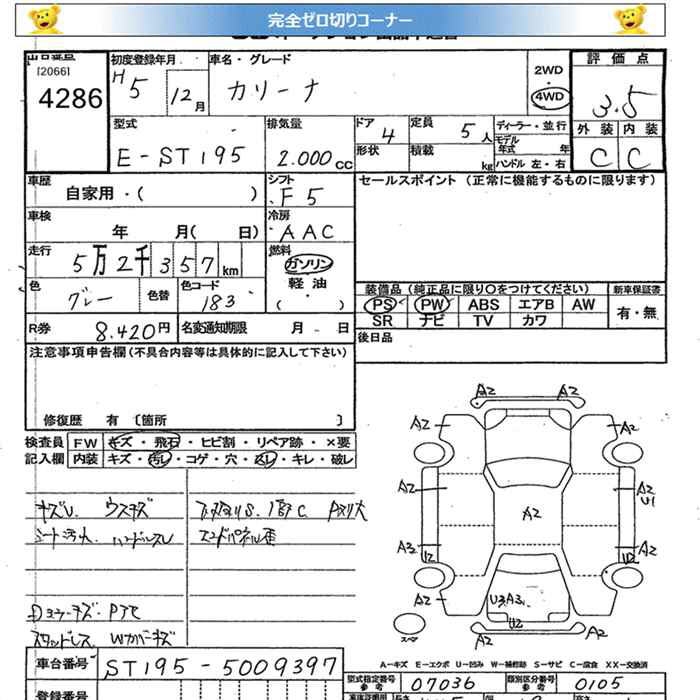 完全ゼロ切りコーナー
出品番号
[2066]
4286
初度登録年月
H5 12月
車名・グレード
カリーナ
2WD
・
4WD
評価点
3.5
外装 内装
C C
型式
E-ST195
排気量
2.000cc
ドア 4
形状
定員 5人
積載 kg
ディーラー・並行
モデル年式 年
ハンドル 左・右
車歴
自家用・( )
シフト
F5
セールスポイント (正常に機能するものに限ります)
車検
年 月( 日)
冷房
AAC
走行
5万2千357km
燃料
ガソリン
軽油
( )
色
グレー
色替
色コード
183
装備品 (純正品に限り○をつけてください)
PS PW ABS エアB AW
SR ナビ TV カワ
新車保証書
有・無
R券 8.420円
名変通知期限 月 日
後日品
注意事項申告欄(不具合内容等は具体的に記入して下さい)
修復歴 有 〔箇所 〕
検査員 FW キズ・飛石・ヒビ割・リペア跡・×要
記入欄 内装 キズ・汚レ・コゲ・穴・スレ・キレ・破レ
キズU. ウスキズ
シート汚れ ハンドルスレ
スタッドレス Wカバーキズ
A2 A2
A2 A2
A2 A2
U1
A2
A3 A2
U2 U2
A2 U3A3 A2
U2
A2 A2
スペア
A-キズ E-エクボ U-凹み W-補修跡 S-サビ C-腐食 XX-交換済
車台番号 ST195-5009397
型式指定番号 参考 07036
類別区分番号 参考 0105
登録番号